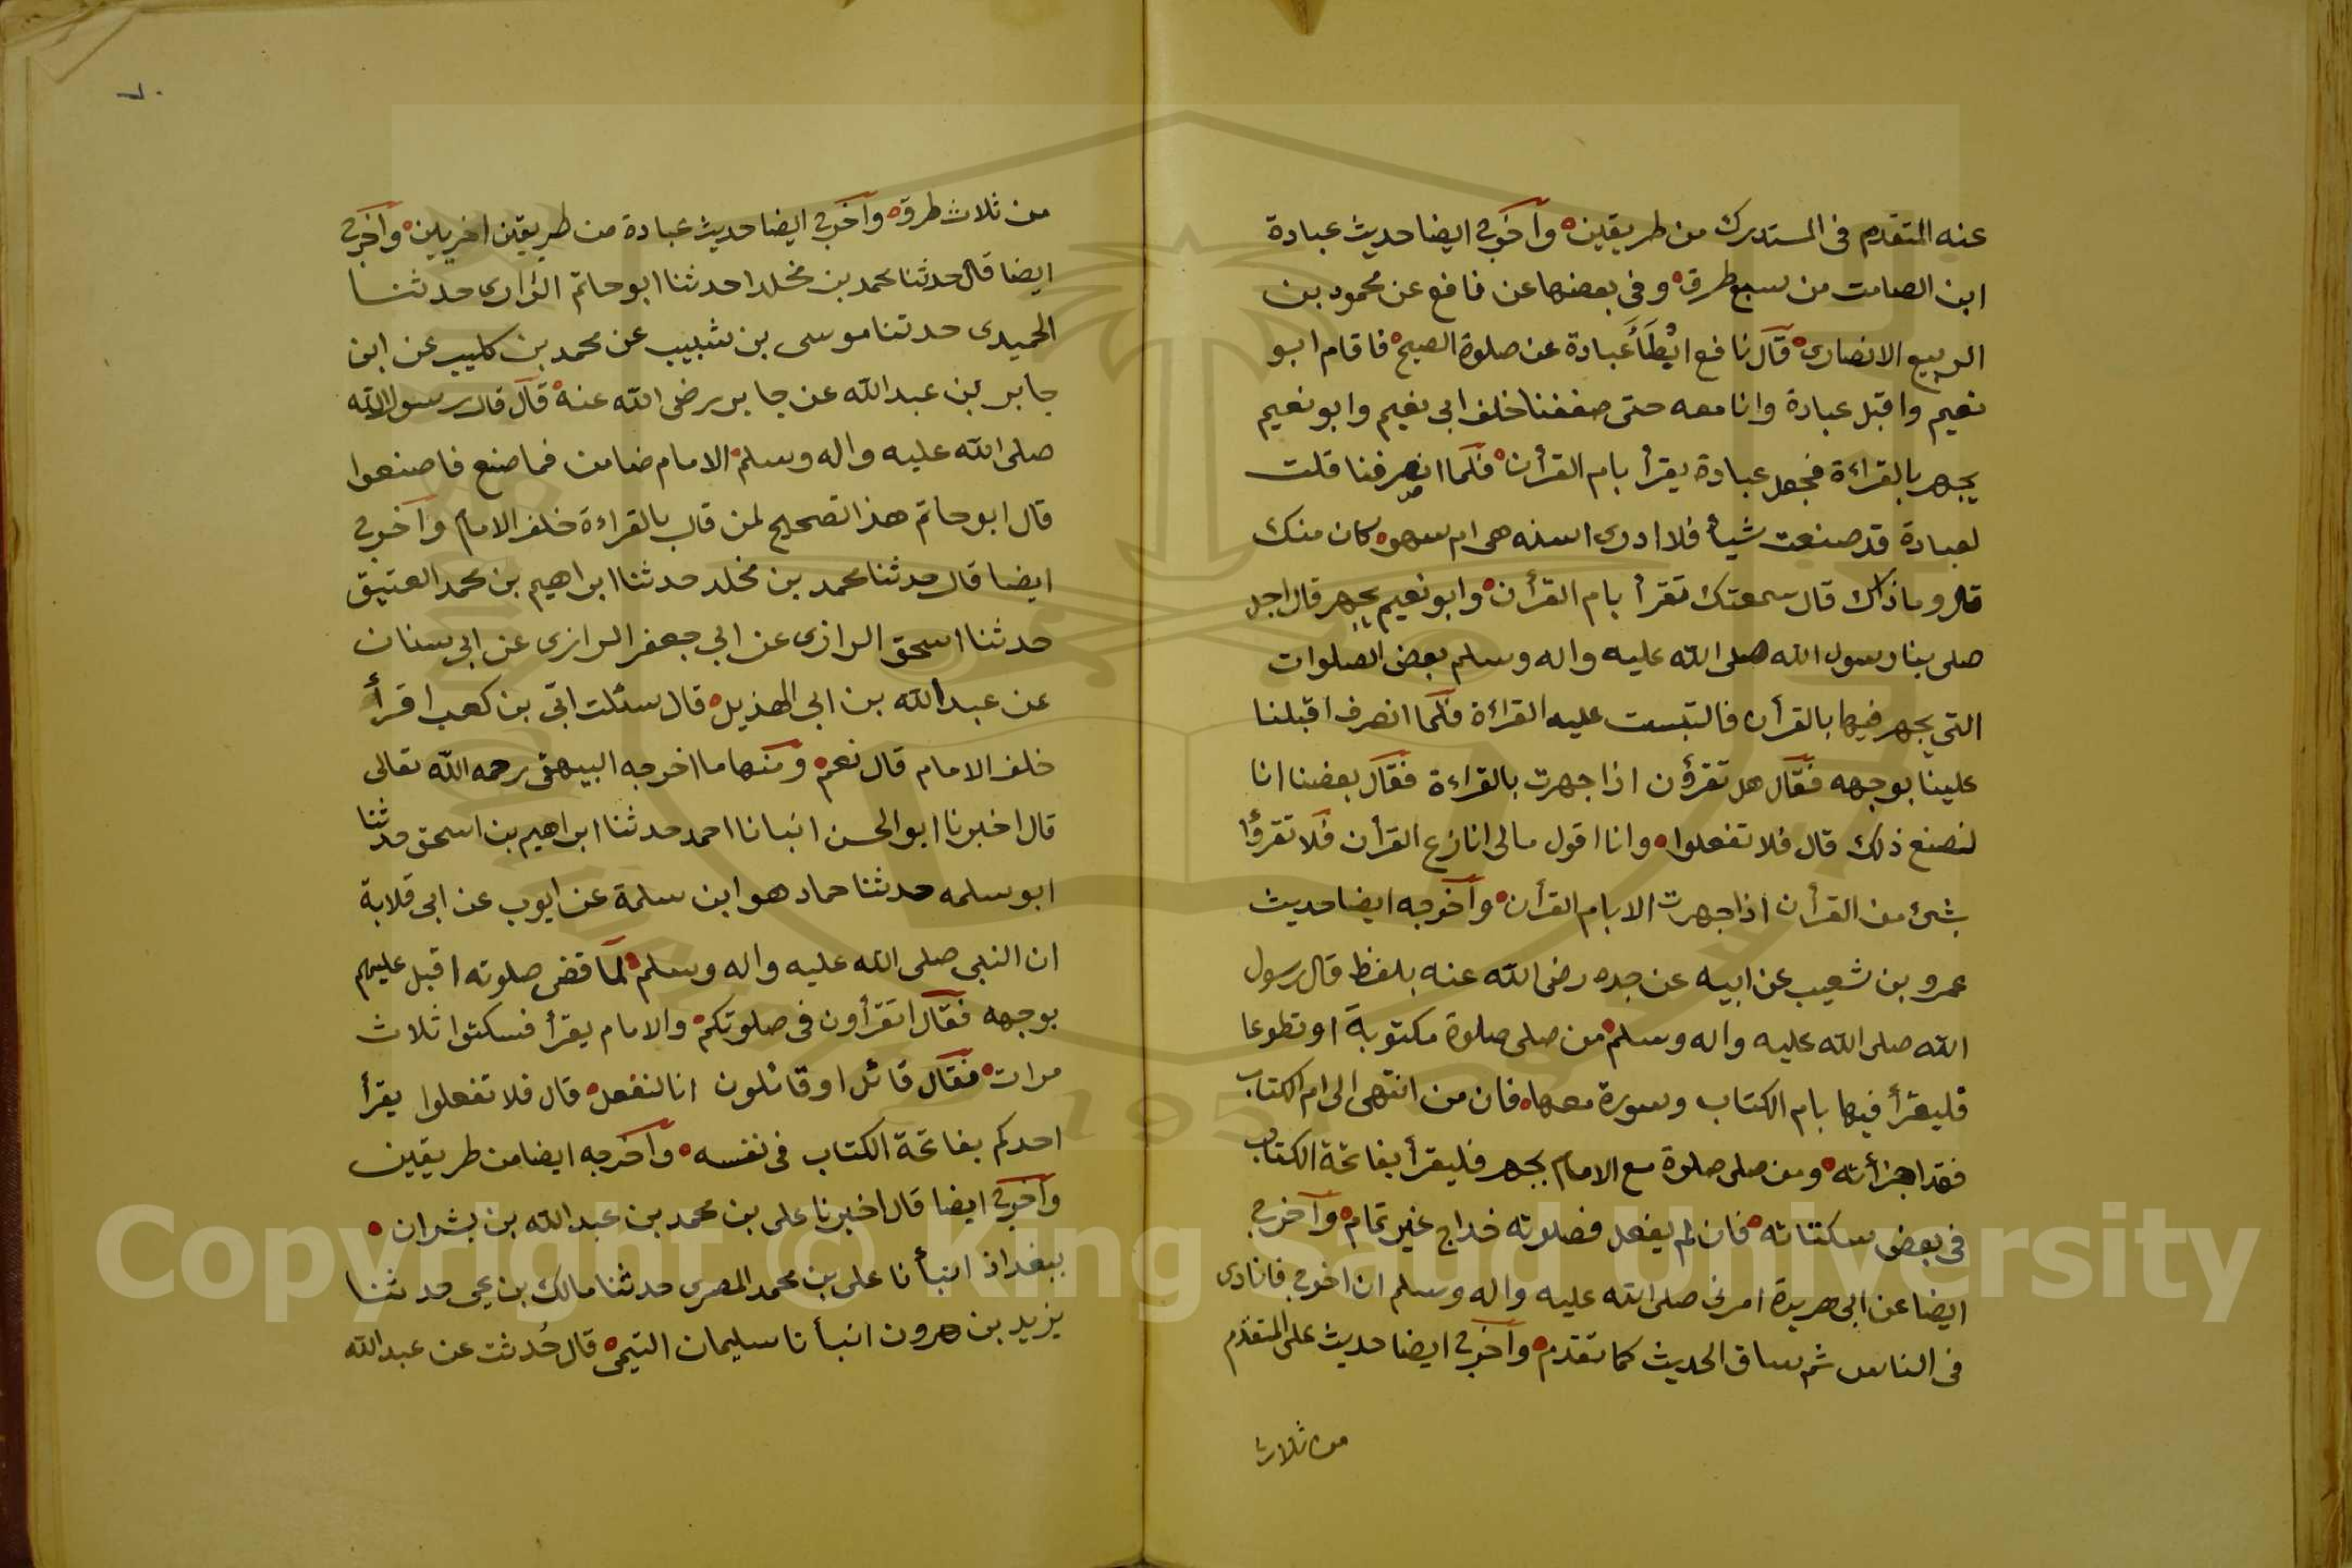 عنه المتقدم فى المستدرك من طريقين وآخرج ايضا حديث عبادة
ابن الصامت من سبع طرق وفى بعضها عن نافع عن محمود بن
الربيع الانصارى قال نافع ابْطَأَ عبادة عن صلوة الصبح فاقام ابو
نعيم واقبل عبادة وانا معه حتى صففنا خلف ابى نعيم وابو نعيم
يجهر بالقراءة فجعل عبادة يقرأ بام القرأن فلما انصرفنا قلت
لعبادة قد صنعت شيأ فلا ادرى اسنه هى ام سهو كان منك
قال وماذاك قال سمعتك تقرأ بام القرأن وابو نعيم يجهر قال اجل
صلى بنا رسول الله صلى الله عليه واله وسلم بعض الصلوات
التى يجهر فيها بالقرأن فالتبست عليه القراءة فلما انصرف اقبلنا
علينا بوجهه فقال هل تقرؤن اذا جهرت بالقراءة فقال بعضنا انا
لنصنع ذلك قال فلا تفعلوا وانا اقول مالى انازع القرأن فلا تقرؤا
بشئ من القرأن اذا جهرت الا بام القرأن وآخرجه ايضا حديث
عمرو بن شعيب عن ابيه عن جده رضى الله عنه بلفظ قال رسول
الله صلى الله عليه واله وسلم من صلى صلوة مكتوبة او تطوعا
فليقرأ فيها بام الكتاب وسورة معها فان من انتهى الى ام الكتاب
فقد اجزأته ومن صلى صلوة مع الامام يجهر فليقرأ بفاتحة الكتاب
فى بعض سكتاته فان لم يفعل فصلوته خداج غير تمام وآخرج
ايضا عن ابى هريرة امرنى صلى الله عليه واله وسلم ان اخرج فانادى
فى الناس ثم ساق الحديث كما تقدم وآخرج ايضا حديث على المتقدم
من ثلاث
٦٠
من ثلاث طرق وآخرج ايضا حديث عبادة من طريقين اخريين وآخرج
ايضا قال حدثنا محمد بن مخلد احدثنا ابو حاتم الرازى حدثنا
الحميدى حدثنا موسى بن شبيب عن محمد بن كليب عن ابن
جابر بن عبد الله عن جابر رضى الله عنه قال قال رسول الله
صلى الله عليه واله وسلم الامام ضامن فما صنع فاصنعوا
قال ابو حاتم هذا تصحيح لمن قال بالقراءة خلف الامام وآخرج
ايضا قال حدثنا محمد بن مخلد حدثنا ابراهيم بن محمد العتيق
حدثنا اسحق الرازى عن ابى جعفر الرازى عن ابى سنان
عن عبد الله بن ابى الهذيل قال سئلت ابّى بن كعب اقرأ
خلف الامام قال نعم ومنها ما اخرجه البيهقى رحمه الله تعالى
قال اخبرنا ابو الحسن انبانا احمد حدثنا ابراهيم بن اسحق حدثنا
ابو سلمه حدثنا حماد هو ابن سلمة عن ايوب عن ابى قلابة
ان النبى صلى الله عليه واله وسلم لما قضى صلوته اقبل عليهم
بوجهه فقال اتقرأون فى صلوتكم والامام يقرأ فسكتوا ثلاث
مرات فقال قائل او قائلون انا لنفعل قال فلا تفعلوا يقرأ
احدكم بفاتحة الكتاب فى نفسه وآخرجه ايضا من طريقين
وآخرج ايضا قال اخبرنا على بن محمد بن عبد الله بن بشران
ببغداد انبأنا على بن محمد المصرى حدثنا مالك بن يحيى حدثنا
يزيد بن هرون انبأنا سليمان التيمى قال حُدثت عن عبد الله
Copyright © King Saud University
1957